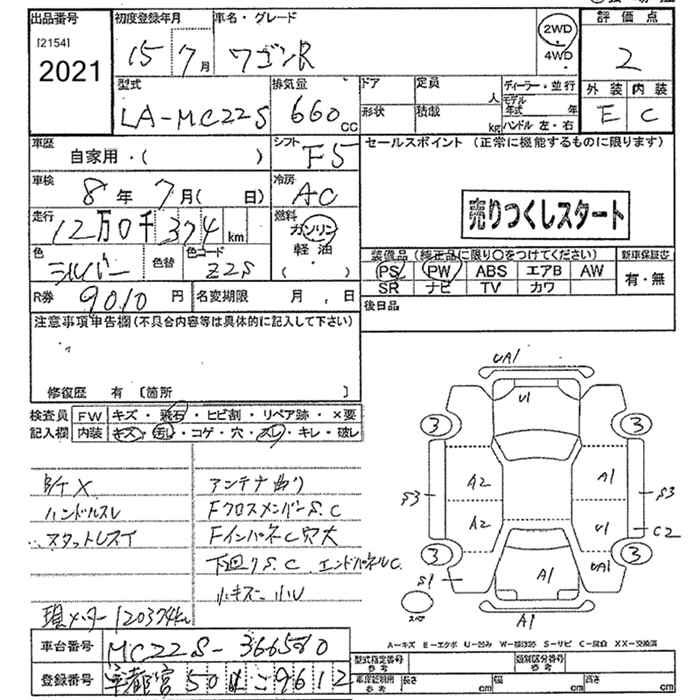 出品番号 初度登録年月 車名・グレード 2WD 4WD 評価点
[2154]
2021
15年 7月 ワゴンR 2
型式 排気量 ドア 定員 人 ディーラー・並行 外装 内装
LA-MC22S 660cc 形状 積載 kg モデル年式 年 ハンドル 左・右 E C
車歴 シフト セールスポイント (正常に機能するものに限ります)
自家用・( ) F5
車検 冷房
8年 7月( 日) AC 売りつくしスタート
走行 燃料
12万0千374km ガソリン 軽油
色 色替 色コード 装備品 (純正品に限り〇をつけてください) 新車保証書
シルバー Z2S PS PW ABS エアB AW 有・無
SR ナビ TV カワ
R券 9010円 名変期限 月 日 後日品
注意事項申告欄(不具合内容等は具体的に記入して下さい)
修復歴 有 〔箇所 〕
検査員 FW キズ・飛石・ヒビ割・リペア跡・×要
記入欄 内装 キズ・汚レ・コゲ・穴・スレ・キレ・破レ
B/T X アンテナ曲り
ハンドルスレ Fクロスメンバー S.C
スタットレスT Fインパネ C穴大
下廻り S.C エンドパネルC.
小キズ・小U
現メーター 120374km
車台番号 MC22S-366580
登録番号 宇都宮 50 9612
UA1
U1
3 3
A2 A1
S3 S3
A2 U1 C2
3 3
UA1
S1 A1
スペア
A1
A-キズ E-エクボ U-凹み W-補修跡 S-サビ C-腐食 XX-交換済
型式指定番号 参考 類別区分番号 参考
車庫証明用 参考 長さ cm 幅 cm 高さ cm